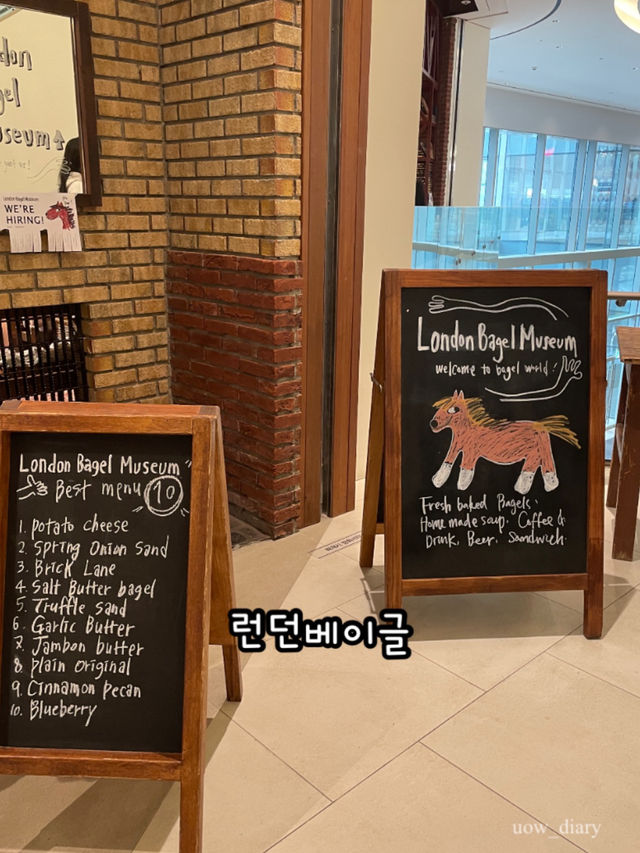 London
Bagel
Museum
London Bagel Museum
WE'RE
HIRING!
London Bagel Museum
Best menu 10
1. potato cheese
2. Spring Onion Sand
3. Brick Lane
4. Salt Butter bagel
5. Truffle Sand
6. Garlic Butter
7. Jambon butter
8. plain original
9. Cinnamon pecan
10. Blueberry
London Bagel Museum
welcome to bagel world!
Fresh baked Bagels.
Home made soup. Coffee &
Drink, Beer, Sandwich.
런던베이글
uow_diary